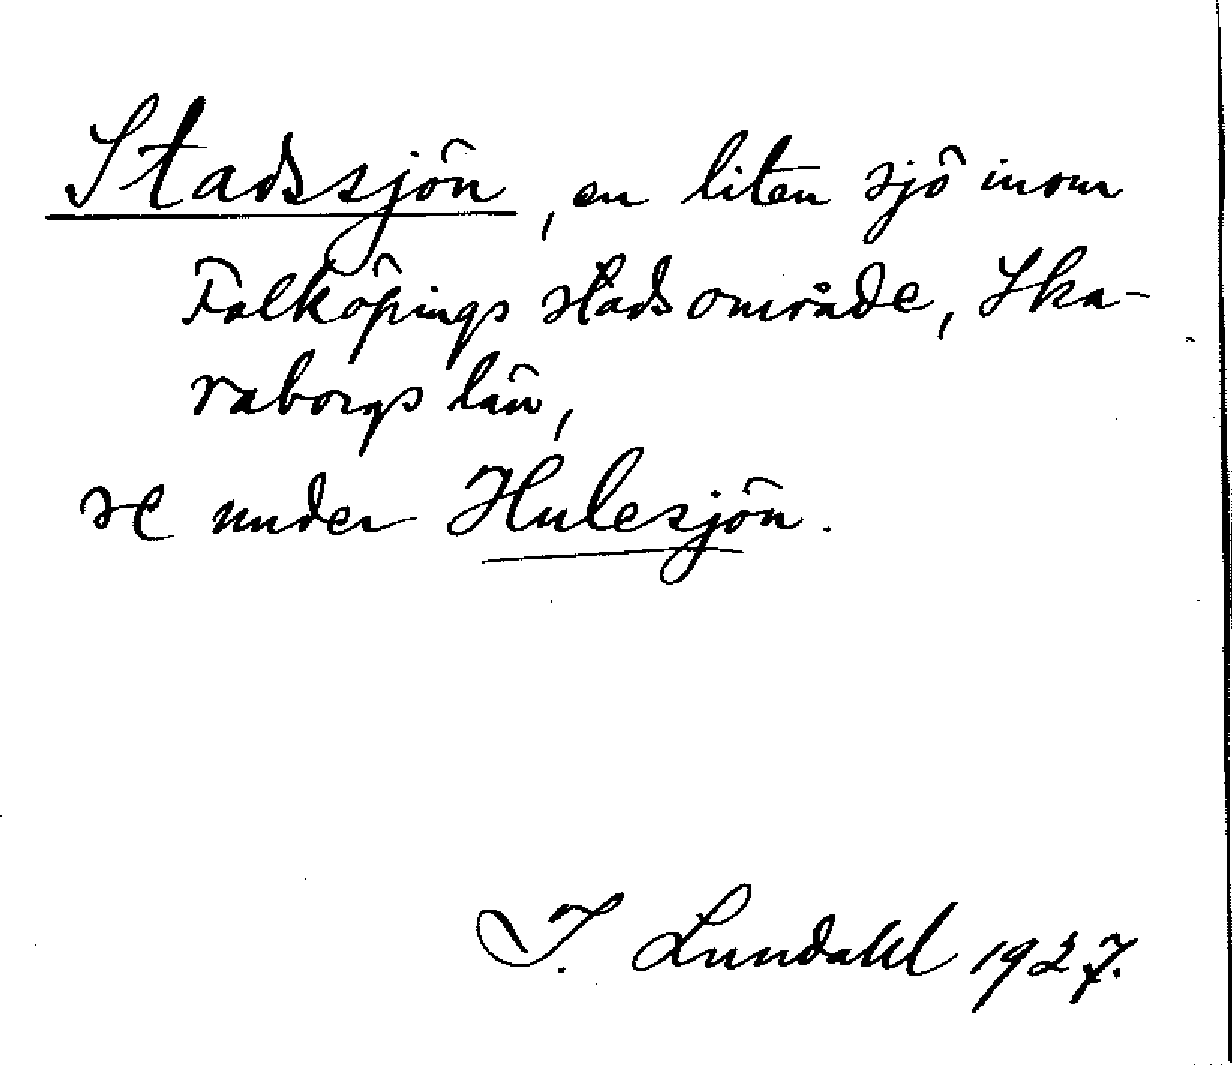 Stadssjön, en liten sjö inom
Falköpings stadsområde, Ska-
raborgs län,
se under Hulesjön.
I. Lundahl 1927.